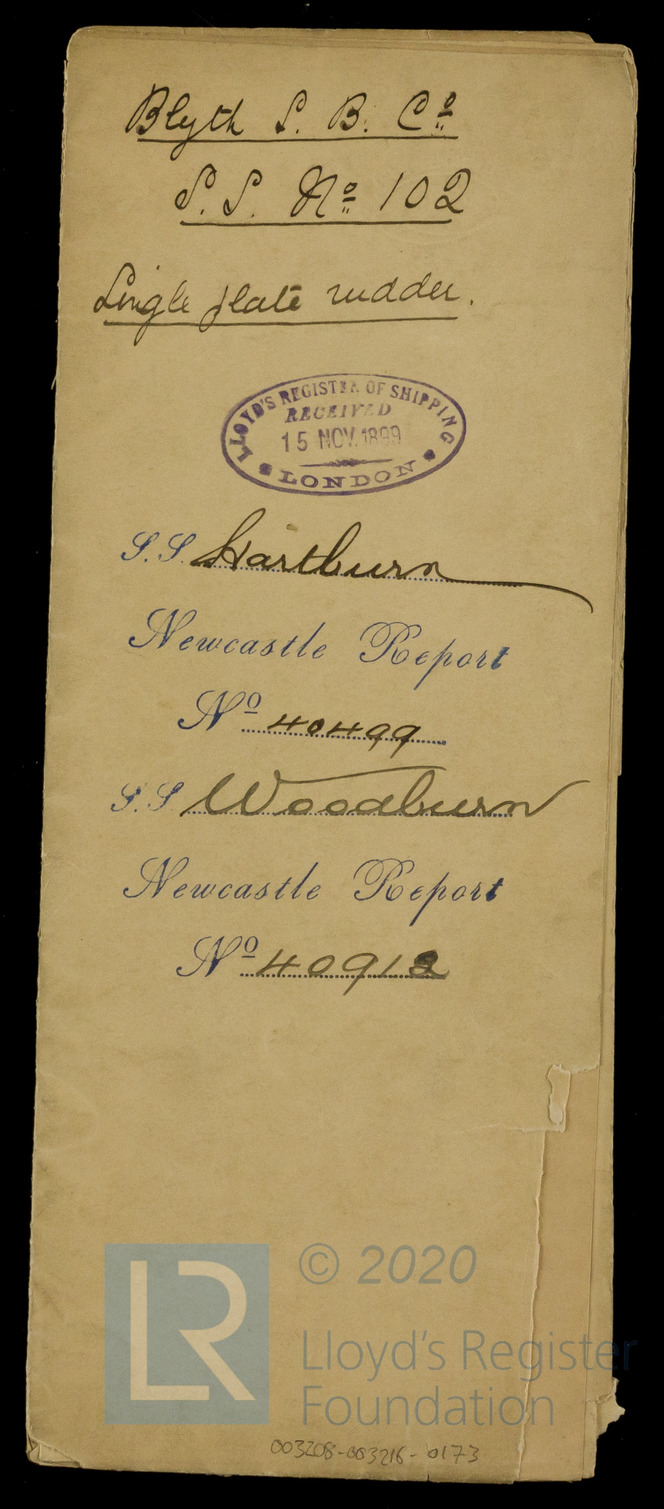 Blyth S. B. Co
S.S. No 102
Single plate rudder.
LLOYD'S REGISTER OF SHIPPING
RECEIVED
15 NOV. 1899
LONDON
S.S Hartburn
Newcastle Report
No 40499
S.S Woodburn
Newcastle Report
No 40912
LR
© 2020
Lloyd's Register
Foundation
003208-003216-0173